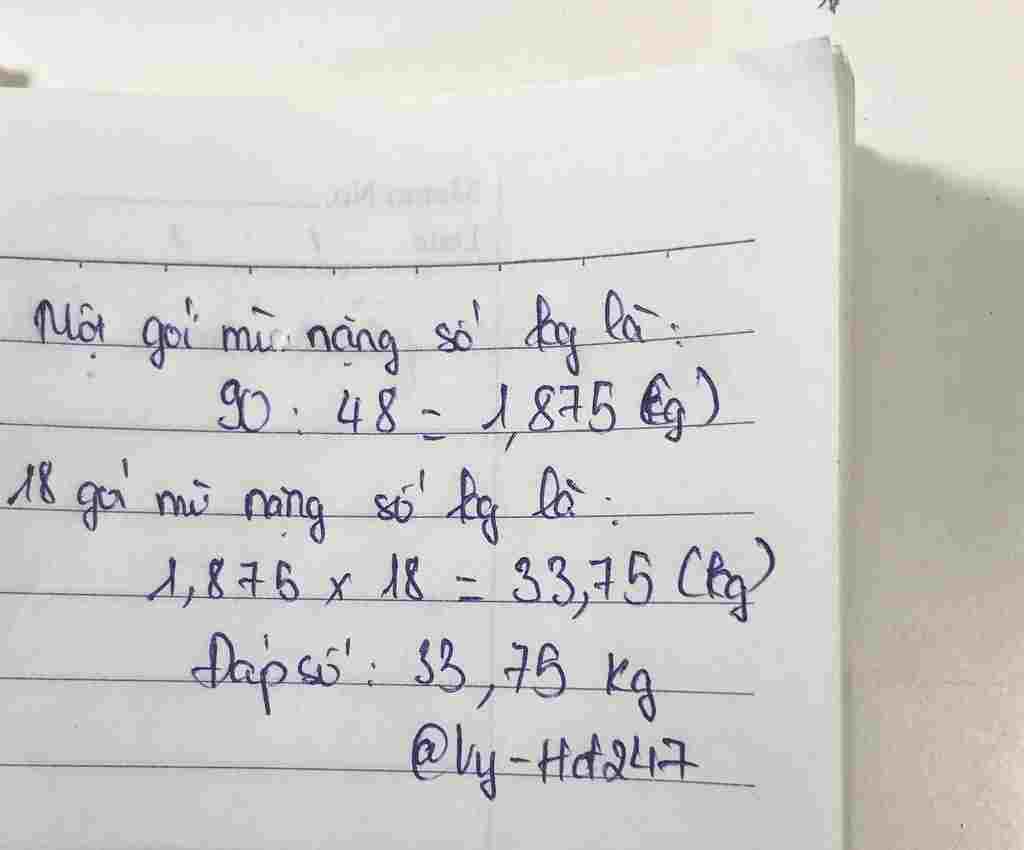 Một gói mì nặng số kg là:
90 : 48 = 1,875 (kg)
18 gói mì nặng số kg là:
1,875 x 18 = 33,75 (kg)
Đáp số: 33,75 kg
@ly-Hd247